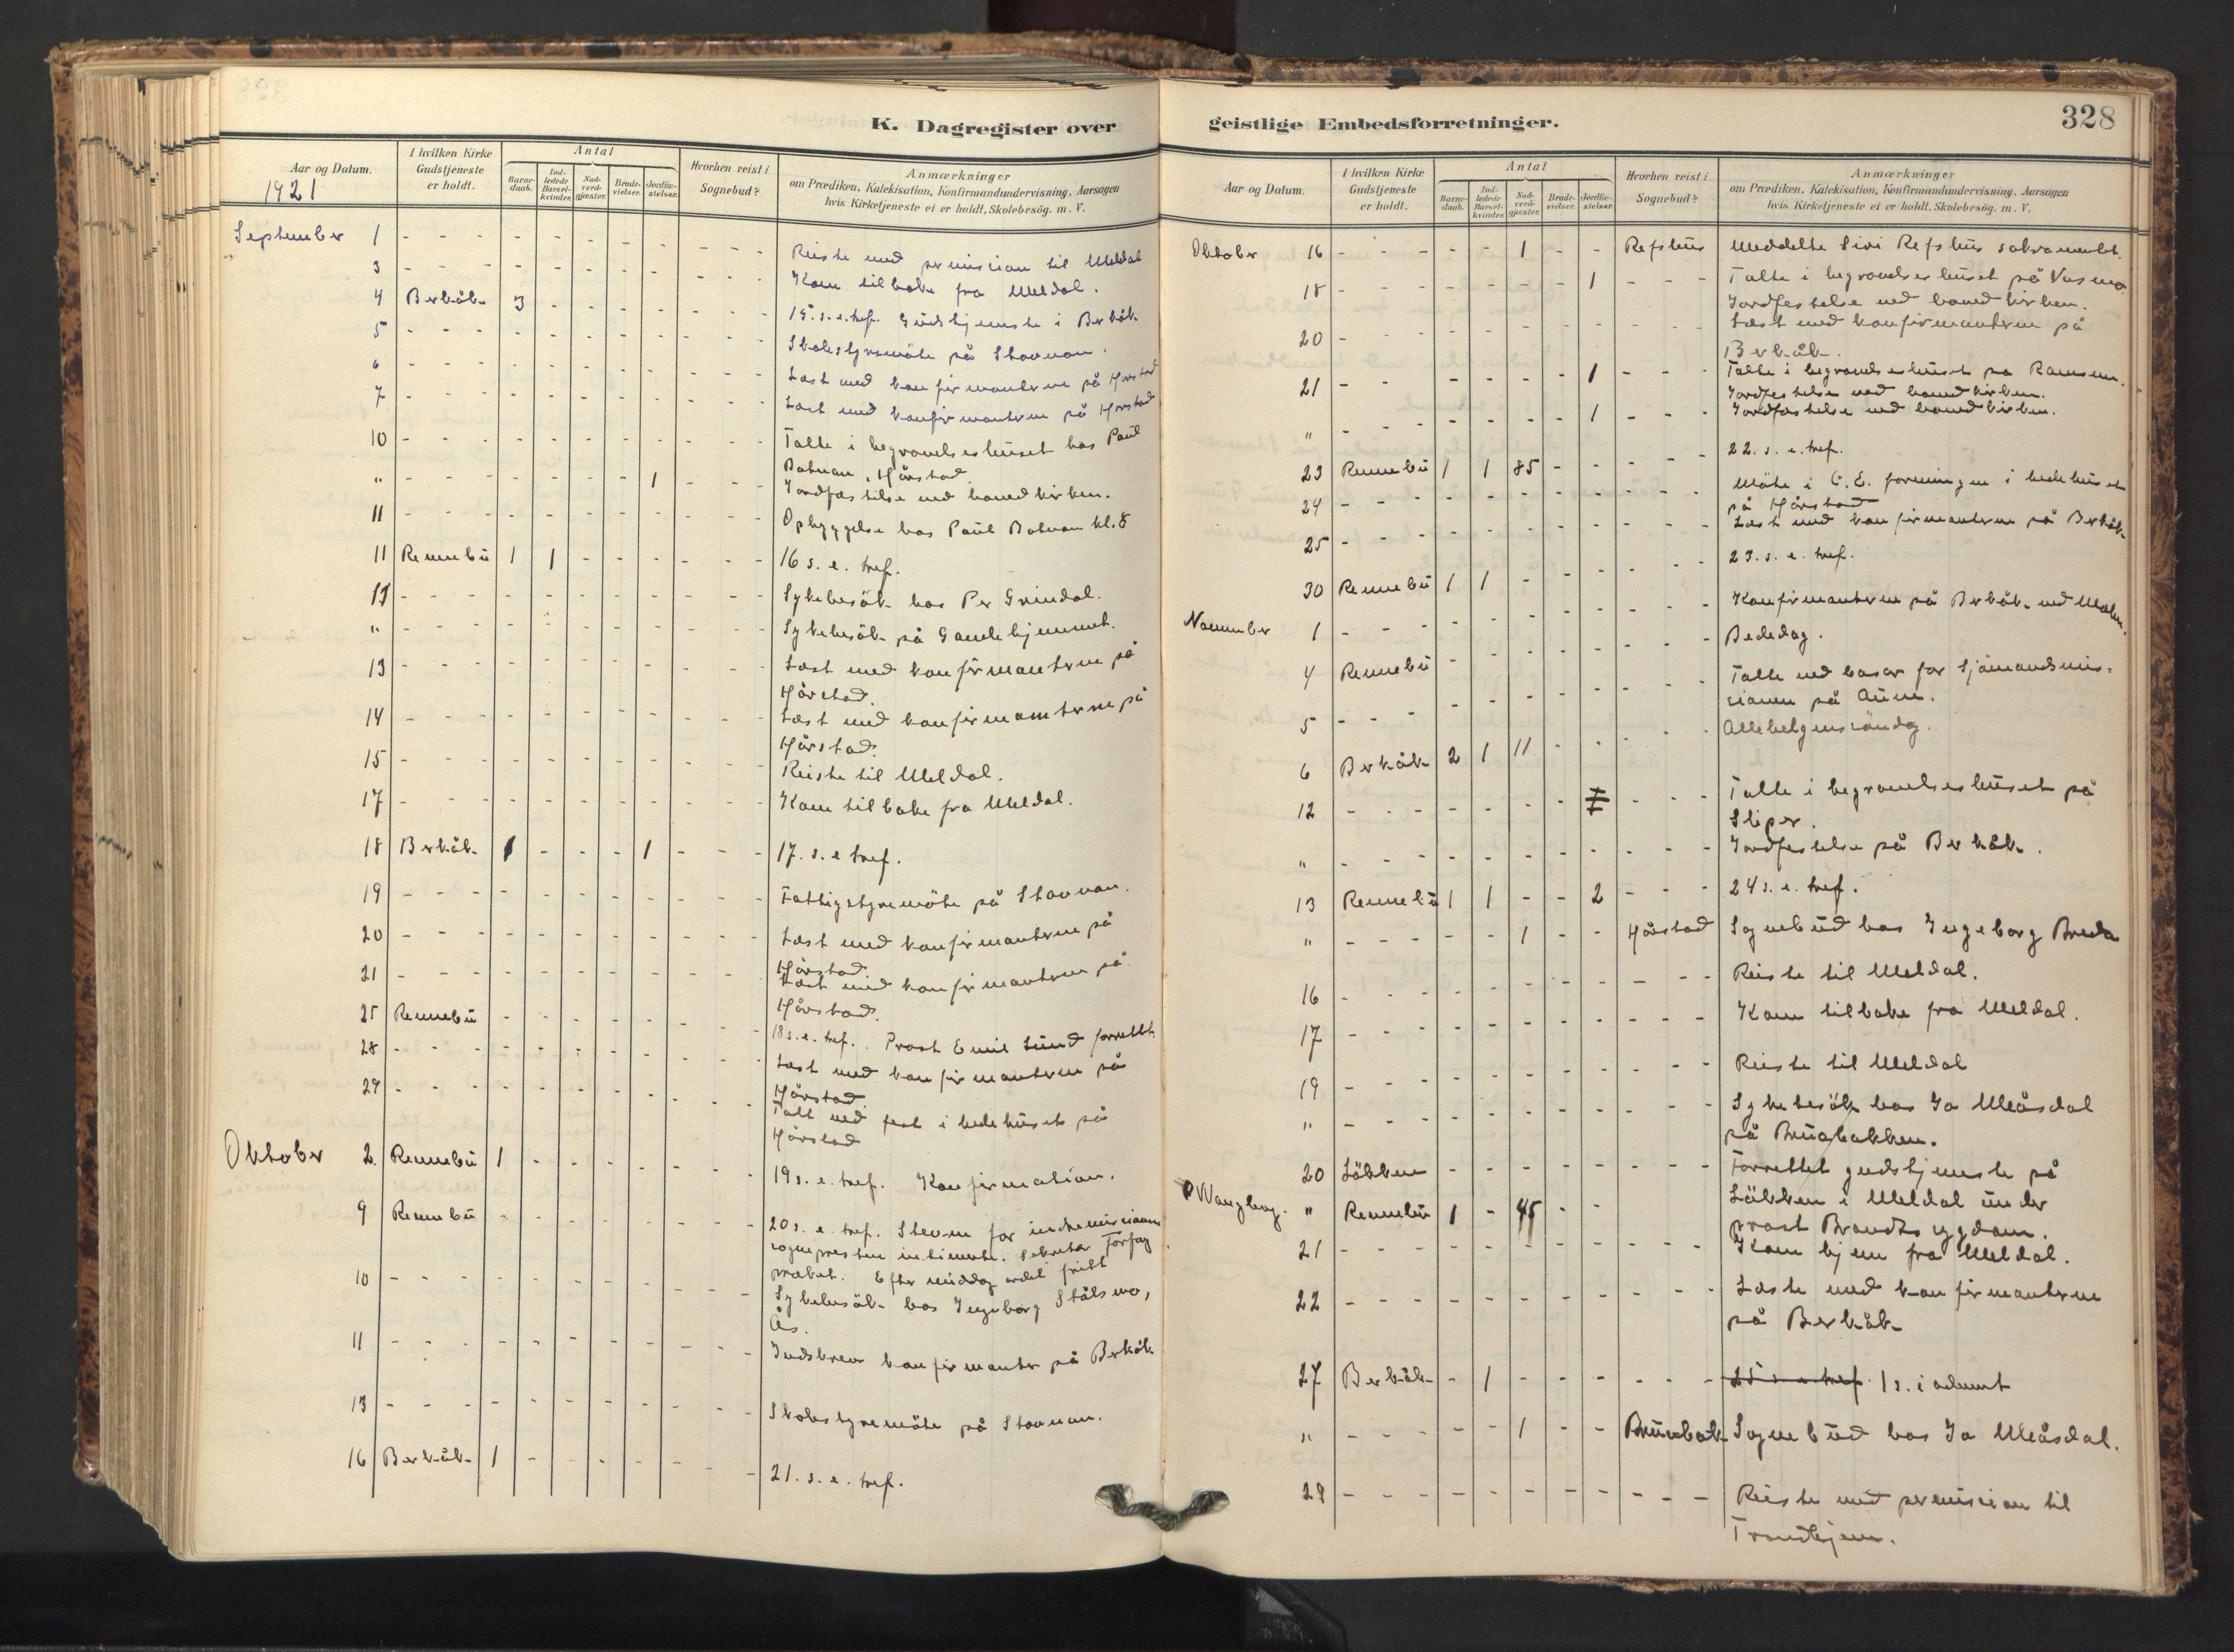 K. Dagregister over
Aar og Datum.
1921
I hvilken Kirke
Gudstjeneste
er holdt.
Antal
Barne-
daab.
Ind-
ledede
Barsel-
kvinder.
Nad-
verd-
gjæster.
Brude-
vielser.
Jordfæ-
stelser.
Hvorhen reist i
Sognebud?
Anmærkninger
om Prædiken, Katekisation, Konfirmandundervisning, Aarsagen
hvis Kirketjeneste ei er holdt, Skolebesög. m. V.
September 1 - - - Reiste med permision til Meldal
3 - - - Kom tilbake fra Meldal.
4 Berkåk 3 - - - 15. s. e. tref. Gudstjeneste i Berkåk
5 - - - Skolestyremöte på Stavnan.
6 - - - Læst med konfirmanterne på Hårstad
7 - - - Læst med konfirmanterne på Hårstad
10 - - - Talte i begravelseshuset hos Paul
Hårstad
" - - - 1 - - - Jordfæstelse ved hovedkirken.
11 - - - Opbyggelse hos Paul kl. 8
11 Rennebu 1 1 - - - 16 s. e. tref.
11 - - - Sykebesök hos Per Grindal.
" - - - Sykebesök på Gamlehjemmet.
13 - - - Læst med konfirmanterne på
Hårstad.
14 - - - Læst med konfirmanterne på
Hårstad.
15 - - - Reiste til Meldal.
17 - - - Kom tilbake fra Meldal.
18 Berkåk 1 - - - 1 - - - 17. s. e tref.
19 - - - Fattigstyremöte på Stavnan.
20 - - - Læst med konfirmanterne på
Hårstad.
21 - - - Læst med konfirmanterne på
Hårstad.
25 Rennebu - - - 18 s. e. tref. Prost Emil Lund forrettet.
28 - - - Læst med konfirmanterne på
Hårstad
29 - - - Talt ved fest i bedehuset på
Hårstad
Oktober 2. Rennebu 1 - - - 19 s. e. tref. Konfirmation.
9 Rennebu - - - 20 s. e. tref. Stevne for indremissionen
sognepresten Sekretær
præket. Eftermiddag fritt
10 - - - Sykebesök hos Ingeborg Stölsmo,
Ås.
11 - - - Indskrev konfirmanter på Berkåk
13 - - - Skolestyremöte på Stavnan.
16 Berkåk 1 - - - 21. s. e. tref.
geistlige Embedsforretninger.
328
Aar og Datum.
I hvilken Kirke
Gudstjeneste
er holdt.
Antal
Barne-
daab.
Ind-
ledede
Barsel-
kvinder.
Nad-
verd-
gjæster.
Brude-
vielser.
Jordfæ-
stelser.
Hvorhen reist i
Sognebud?
Anmærkninger
om Prædiken, Katekisation, Konfirmandundervisning, Aarsagen
hvis Kirketjeneste ei er holdt, Skolebesög. m. V.
Oktober 16 - - - 1 - - Refshus Meddelte Sivi Refshus sakramentet.
18 - - - 1 - - - Talte i begravelseshuset på Vasmo
Jordfestelse ved hovedkirken.
20 - - - Læst med konfirmanterne på
Berkåk.
21 - - - 1 - - - Talte i begravelseshuset på Ramsem.
Jordfestelse ved hovedkirken.
" - - - 1 - - - Jordfæstelse ved hovedkirken.
23 Rennebu 1 1 85 - - - 22. s. e. tref.
24 - - - Möte i C. E. foreningen i bedehuset
på Hårstad
25 - - - Læst med konfirmanterne på Berkåk
30 Rennebu 1 1 - - - 23. s. e. tref.
November 1 - - - Konfirmanterne på Berkåk
4 Rennebu - - - Bededag.
5 - - - Talte ved basar for Sjömandsmis-
sionen på Aune.
6 Berkåk 2 1 11 - - - Allehelgenssöndag.
12 - - - Talte i begravelseshuset på
Sliper.
" - - - Jordfestelse på Berkåk.
13 Rennebu 1 1 - - 2 - - - 24 s. e. tref.
" - - - 1 - - Hårstad Sognebud hos Ingeborg
16 - - - Reiste til Meldal.
17 - - - Kom tilbake fra Meldal.
19 - - - Reiste til Meldal
" - - - Sykebesök hos Jo Meåsdal
på Bruabakken.
20 Lökken - - - Forrettet gudstjeneste på
Lökken i Meldal under
prost Brandts sygdom.
P Wangberg. " Rennebu 1 - 45 - -
21 - - - Kom hjem fra Meldal.
22 - - - Læste med konfirmanterne
på Berkåk
27 Berkåk - 1 - - - 25 s. e tref. 1 s. i advent
" - - - 1 - - Bruabak Sognebud hos Jo Meåsdal.
29 - - - Reiste med permision til
Trondhjem.